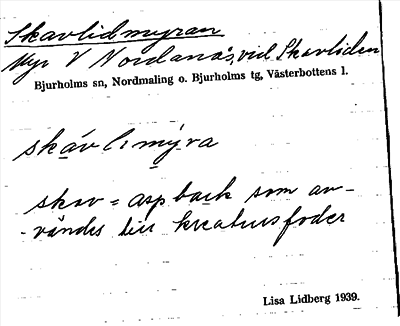 Skavlidmyran
Myr V Nordanås, vid Skavliden
Bjurholms sn, Nordmaling o. Bjurholms tg, Västerbottens l.
skáv mýra
skav = aspbark som an-
vändes till kreatursfoder
Lisa Lidberg 1939.